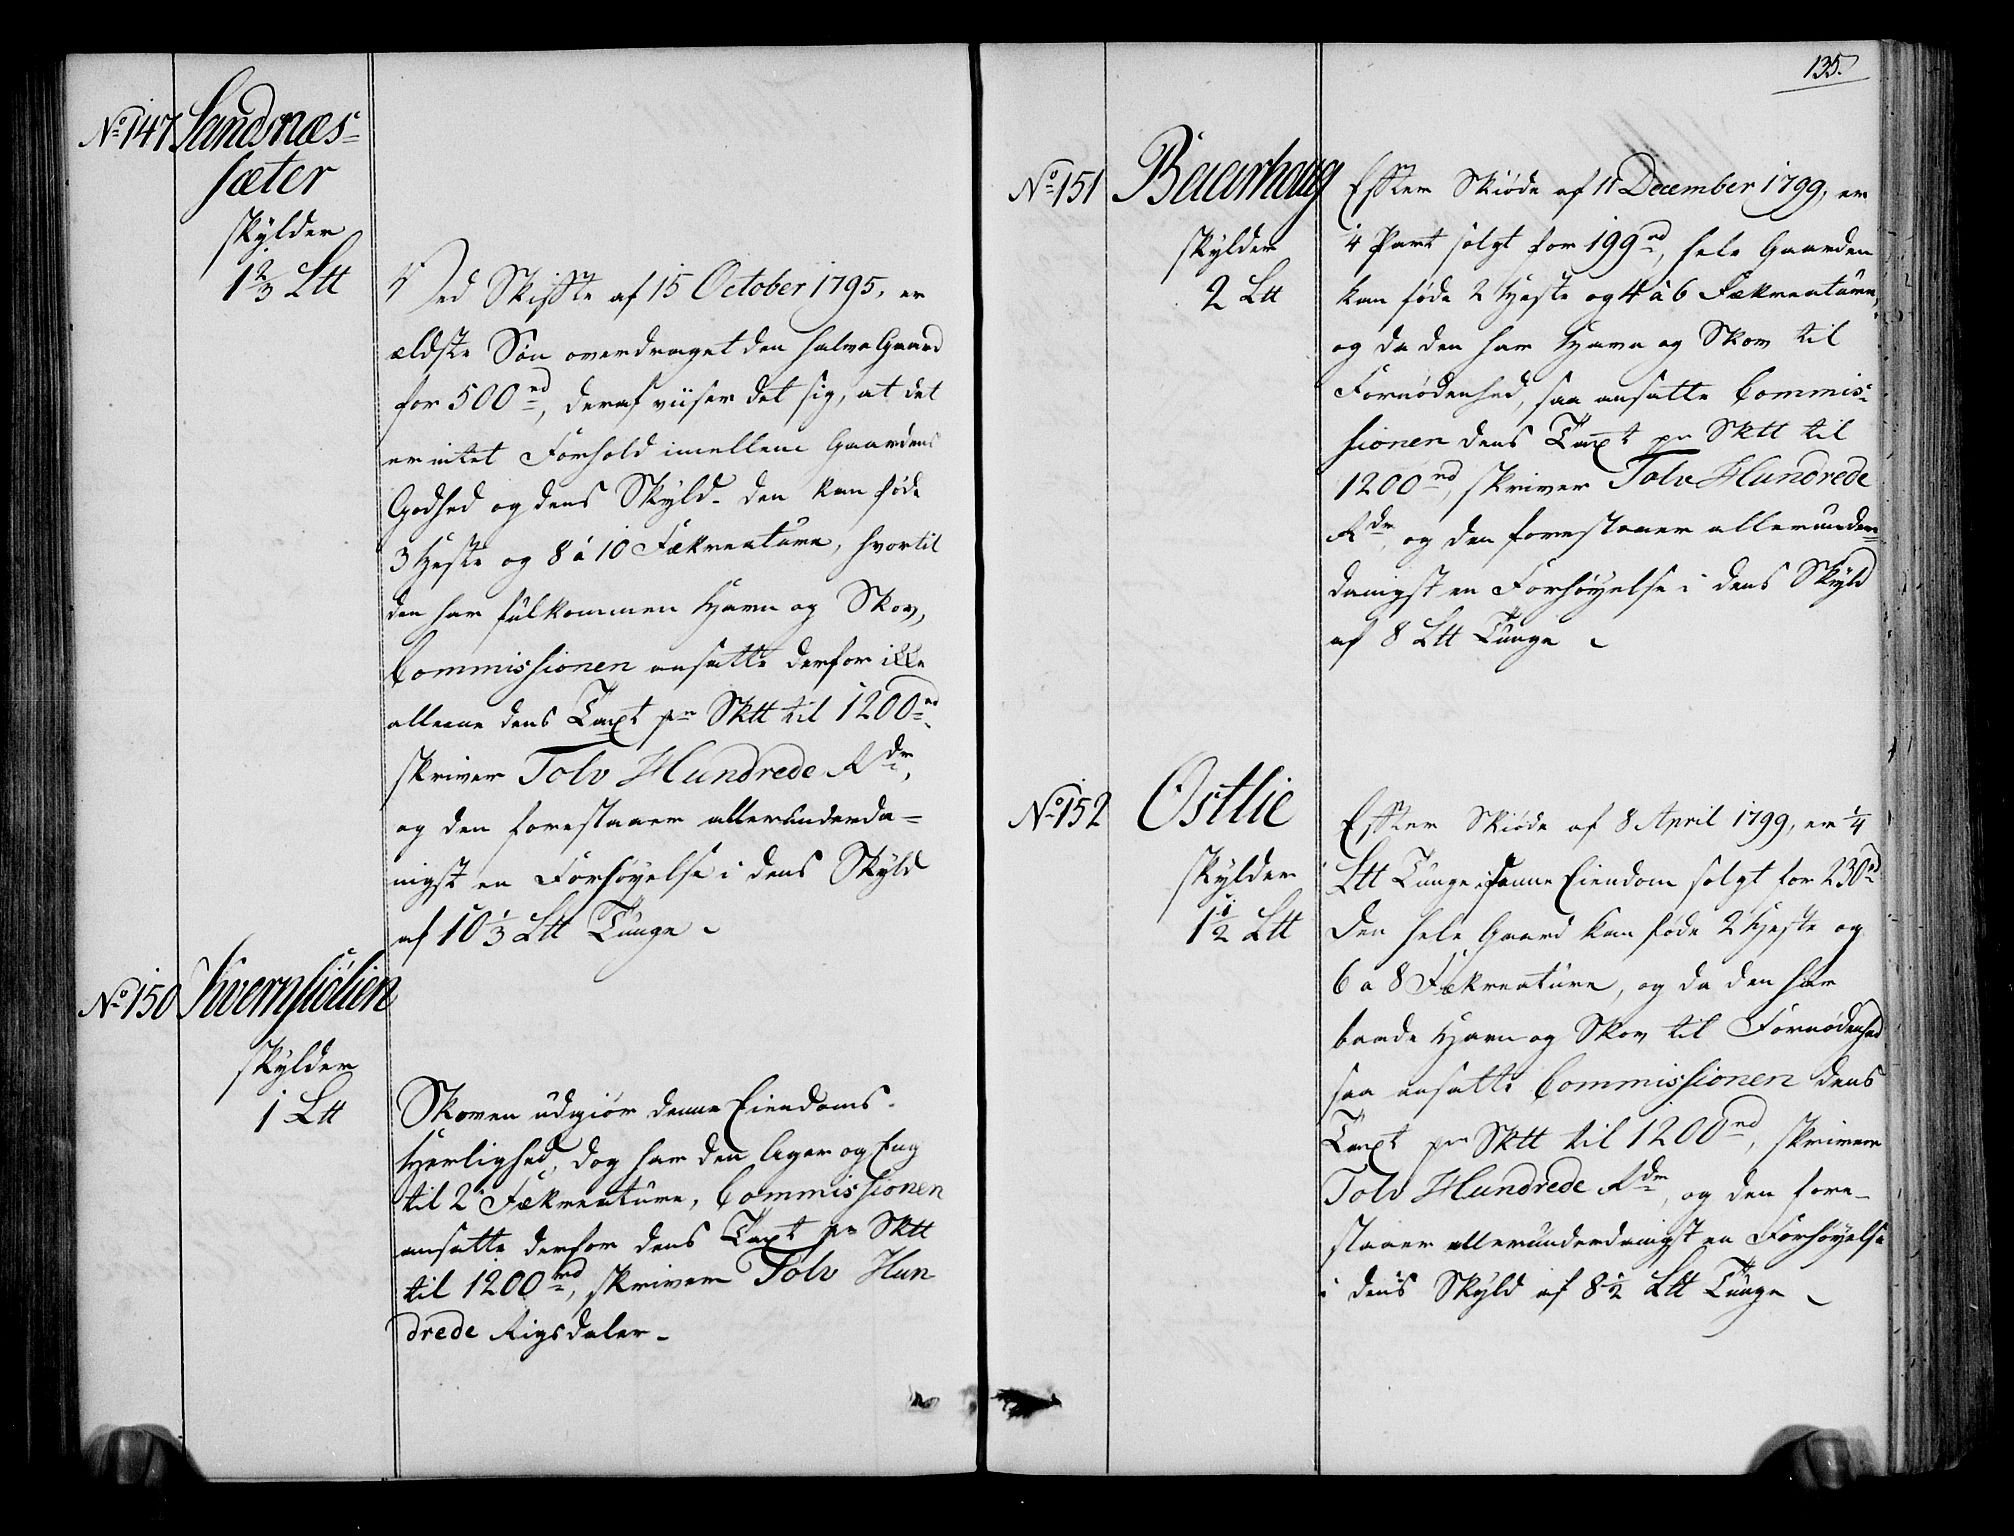 No 147 Sandnæs-
sæter
skylder
1 2/3 Ltt
Ved Skifte af 15 October 1795, er
ældste Søn overdraget den halve Gaard
for 500 rd, deraf viiser det sig, at det
er intet Forhold imellem Gaardens
Godhed og dens Skyld. den kan føde
3 Heste og 8 à 10 Fækreature, hvortil
den har fulkommen Havn og Skov,
Commissionen ansatte derfor ikke
alleene dens Taxt pr Sktt til 1200 rd
skriver Tolv Hundrede Rdr,
og den forestaaer allerunderda-
nigst en Forhøyelse i dens Skyld
af 10 1/3 Ltt Tunge
No 150 Kvernsiølien
skylder
1 Ltt
Skoven udgiør denne Eiendoms
Herlighed, dog har den Ager og Eng
til 2 Fækreature, Commissionen
ansatte derfor dens Taxt pr Sktt
til 1200 rd, skriver Tolv Hun
drede Rigsdaler
135.
No 151 Beierhaug
skylder
2 Ltt
Efter Skiøde af 11 December 1799, er
1/4 Part solgt for 199 rd, hele Gaarden
kan føde 2 Heste og 4 à 6 Fækreature,
og da den har Havn og Skov til
Fornødenhed, saa ansatte Commis-
sionen dens Taxt pr Sktt til
1200 rd, skriver Tolv Hundrede
Rdr, og den forestaaer allerunder-
danigst en Forhøyelse i dens Skyld
af 8 Ltt Tunge
No 152 Østlie
skylder
1 1/2 Ltt
Efter Skiøde af 8 April 1799, er 1/4
Ltt Tunge i denne Eiendom solgt for 230 rd
Den hele Gaard kan føde 2 Heste og
6 a 8 Fækreature, og da den har
baade Havn og Skov til Fornødenhed
saa ansatte Commissionen dens
Taxt pr Sktt til 1200 rd, skriver
Tolv Hundrede Rdr, og den fore-
staaer allerunderdanigst en Forhøyelse
i dens Skyld af 8 1/2 Ltt Tunge